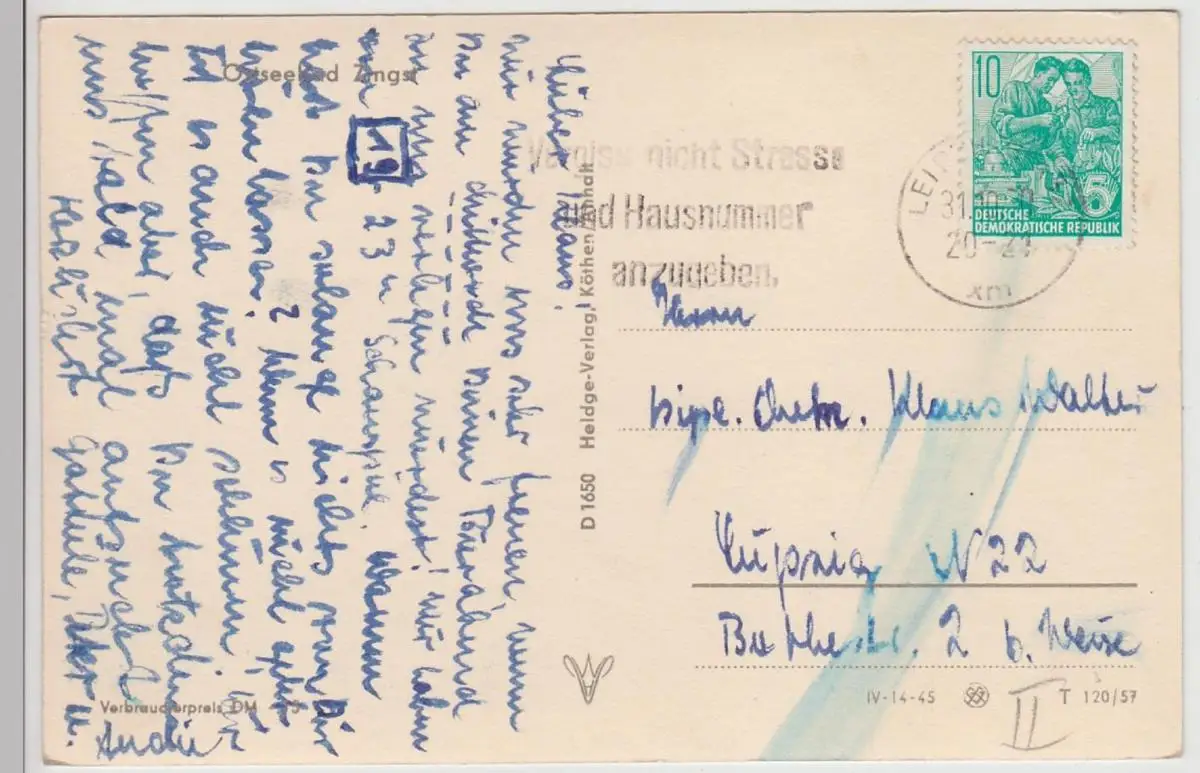 Ostseebad Zingst
Lieber Klaus!
wir würden uns sehr freuen, wenn
Du am Mittwoch Deinen
zu uns verlegen würdest! Wir haben
von 19 - 23 u Schauspiel. Warum
hast Du solange nichts von Dir
hören lassen? Wenn es nicht geht
ist es auch nicht schlimm, wir
hoffen aber, daß Du trotzdem
uns bald mal aufsuchst.
Herzlichst Peter u.
Verbraucherpreis DM
D 1650 Heldge-Verlag, Köthen/Anhalt
Vergiss nicht Strasse
und Hausnummer
anzugeben.
10
DEUTSCHE
DEMOKRATISCHE REPUBLIK
5
LEIPZIG
31.10.
20-21
xm
Herrn
Dipl. Chem. Klaus Walter
Leipzig N22
Bothestr. 2 b. Weise
IV-14-45
II
T 120/57